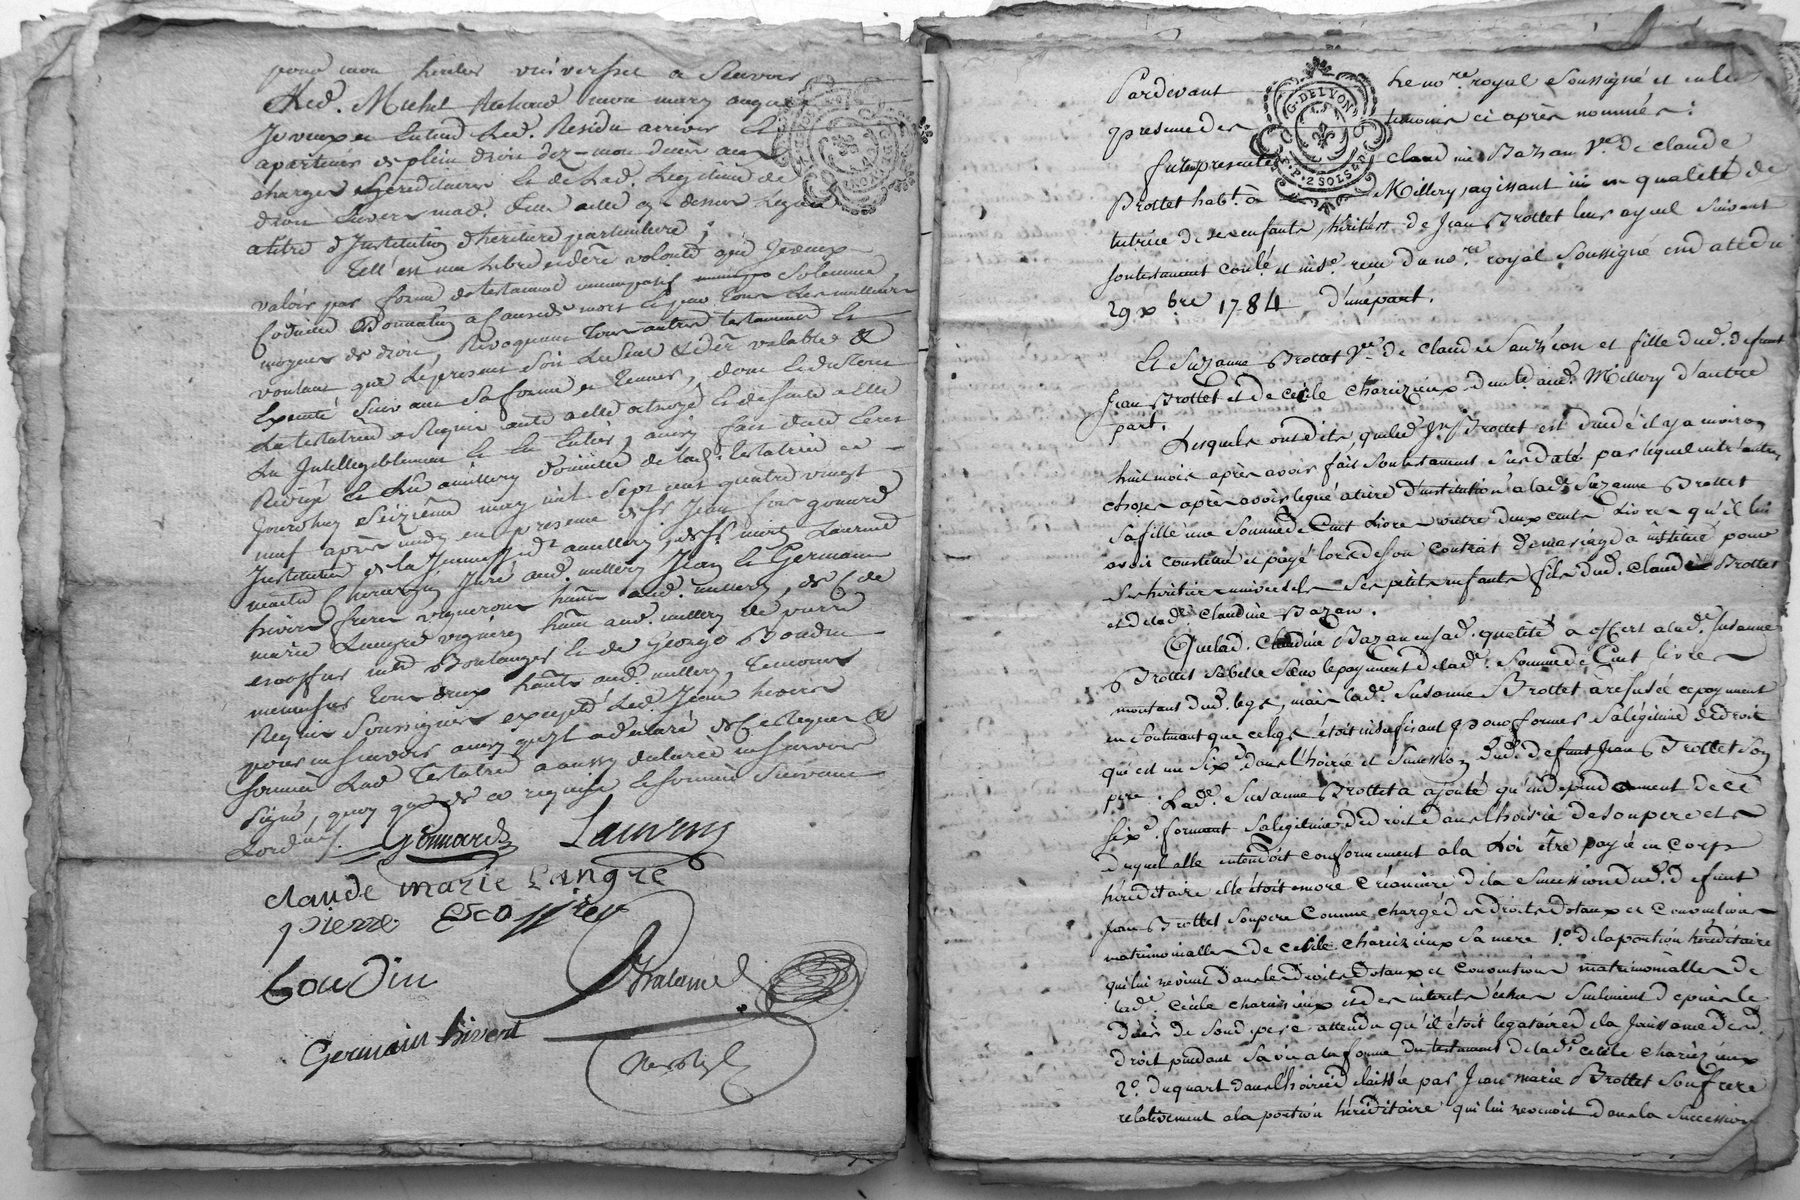 pour mon heritier universel a Scavoir
Led. Michel Richaud mon mary auquel
Je veux et Entend Led. Residu arriver Et
apartenir de plein droit dez mon deces aux
charges hereditaires Et de Lad. Legitime de
droit Envers mad. fille a elle cy dessus Leguée
a titre d'Institution d'heritiere particuliere ;
Tell'est ma libre et dere volonté que Je veux
valoir par forme de testament solemne,
Codicile Donnation a Cause de mort Et par tous Les meilleurs
moyens de droit, Revoquant Tous autres testaments Et
voulant que Le present soit Le Seul & der valable &
Executé suivant Sa forme et Teneur, dont Lecture
La testatrice a Requis acte a elle octroyé Et de suite a elle
Lu Intelligiblement Et En Entier, ainsy fait dicté Leu
Redigé Et Lu a millery domicile de lad. Testatrice ce
Jourdhuy Seizieme may mil sept cent quatre vingt
neuf après midy en presence de Sr Jean gonnard
de la Jeunesse a millery, de Sr Laurent
maitre Chirurgien Juré aud. millery Jean Et Germain
hivert freres vignerons hants aud. millery, de Claude
marie Langre vigneron hant aud. millery de pierre
escoffier md Boulanger Et de George Boudin
menuisier tous deux hants aud. millery, temoins
Requis Soussignés excepté Led. Jean hivert
pour ne scavoir ainsy qu'il a declaré de Ce Requis &
Sommé Lad Testatrice a aussy declaré ne scavoir
Signé, quoy que de ce requise Et sommée suivant
Lordce.
Gonnard Laurent
claude marie Langre
pierre Escoffier
boudin
Germain hivert
G. DE LYON
Pardevant Le nore. royal Soussigné et en la
presence des temoins ci après nommés :
furent presents Claudine Bazan Ve. de Claude
Brottet habt. à Millery, agissant ici en qualité de
tutrice de ses enfants, héritiers de Jean Brottet leur ayeul suivant
son testament conle. et inse. reçu du nore. royal Soussigné en date du
29 xbre 1784 d'une part.
G. DE LYON
2 SOLS
Et Suzanne Brottet Ve. de Claude Sauzion et fille dud. defunt
Jean Brottet et de Cecile Charezieux demte. aud. Millery d'autre
part.
Lesquels ont dits que led. Jn Brottet est decedé il y a environ
huit mois après avoir fait son testament sus daté par lequel entr'autres
choses après avoir legué a titre d'institution a lade. Suzanne Brottet
sa fille une somme de Cent Livres outre deux cents Livres qu'il lui
avoit constitué et payé lors de son contrat de mariage a institué pour
ses heritiers universels ses petits enfants fils dud. Claude Brottet
et de lade. Claudine Bazan.
Que lad. Claudine Bazan en sad. qualité a offert a lade. Susanne
Brottet sa belle Sœur le payement de lade. Somme de Cent livres
montant dud. legs, mais lade. Susanne Brottet a refusé ce payement
en soutenant que ce legs étoit insufisant pour former sa légitime de droit
qui est un sixe. dans l'hoirie et succession dud. defunt Jean Brottet son
pere. Lade. Susanne Brottet a ajouté qu'independamment de ce
sixe. formant sa légitime de droit dans l'hoirie de son pere et
duquel elle entendoit conformement a la Loi être payé en corps
héréditaire elle étoit encore créancière de la succession dud. defunt
Jean Brottet son pere comme chargé des droits dotaux et conventions
matrimonialles de Cecile Charezieux sa mere 1°. de la portion héréditaire
qui lui revient dans les droits dotaux et conventions matrimonialles de
lade. Cecile Charezieux et des interets échus seulement depuis le
decès de sond. pere attendu qu'il étoit legataire de la jouissance desd.
droit pendant sa vie a la forme du testament de lade. Cecile Charezieux
2°. du quart dans l'hoirie délaissée par Jean marie Brottet son frere
relativement a la portion héréditaire qui lui revenoit dans la succession